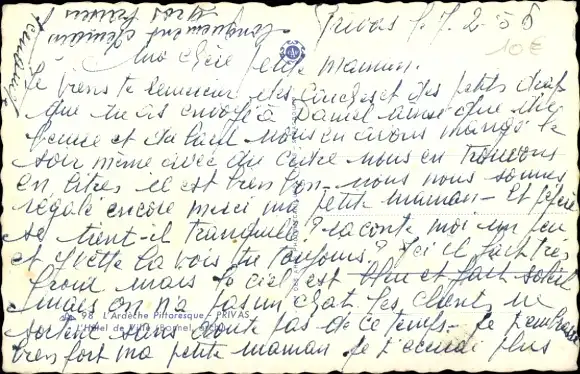 Privas le 7.2.58
10€
Ma chère petite maman.
Je viens te remercier des couches et des petits draps
que tu as envoyé à Daniel ainsi que du
beurre et du lard nous en avons mangé le
soir même avec du cidre nous en trouvons
en litres il est très bon nous nous sommes
régalé encore merci ma petite maman - Et
se tient-il tranquille? raconte moi un peu
et Yvette la vois tu toujours? Ici il fait très
froid mais le ciel est bleu et fait soleil
mais on n'a pas un chat. Les clients ne
98 L'Ardèche Pittoresque - PRIVAS
L'Hôtel de Ville
sortent sans doute pas de ce temps - Je t'embrasse
bien fort ma petite maman Je t'écrirai plus
longuement demain
Gros baisers